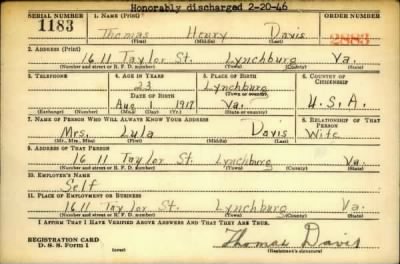 Honorably discharged 2-20-46
SERIAL NUMBER 1. NAME (Print) ORDER NUMBER
1183 Thomas Henry Davis 2883
(First) (Middle) (Last)
2. ADDRESS (Print)
1611 Taylor St. Lynchburg Va.
(Number and street or R. F. D. number) (Town) (County) (State)
3. TELEPHONE 4. AGE IN YEARS 5. PLACE OF BIRTH 6. COUNTRY OF CITIZENSHIP
23 Lynchburg
DATE OF BIRTH (Town or county)
Aug 1 1917 Va. U.S.A.
(Exchange) (Number) (Mo.) (Day) (Yr.) (State or country)
7. NAME OF PERSON WHO WILL ALWAYS KNOW YOUR ADDRESS 8. RELATIONSHIP OF THAT PERSON
Mrs. Lula Davis Wife
(Mr., Mrs., Miss) (First) (Middle) (Last)
9. ADDRESS OF THAT PERSON
1611 Taylor St. Lynchburg Va.
(Number and street or R. F. D. number) (Town) (County) (State)
10. EMPLOYER'S NAME
Self
11. PLACE OF EMPLOYMENT OR BUSINESS
1611 Taylor St. Lynchburg Va.
(Number and street or R. F. D. number) (Town) (County) (State)
I AFFIRM THAT I HAVE VERIFIED ABOVE ANSWERS AND THAT THEY ARE TRUE.
REGISTRATION CARD
D. S. S. Form 1 (over) Thomas Davis
(Registrant's signature)